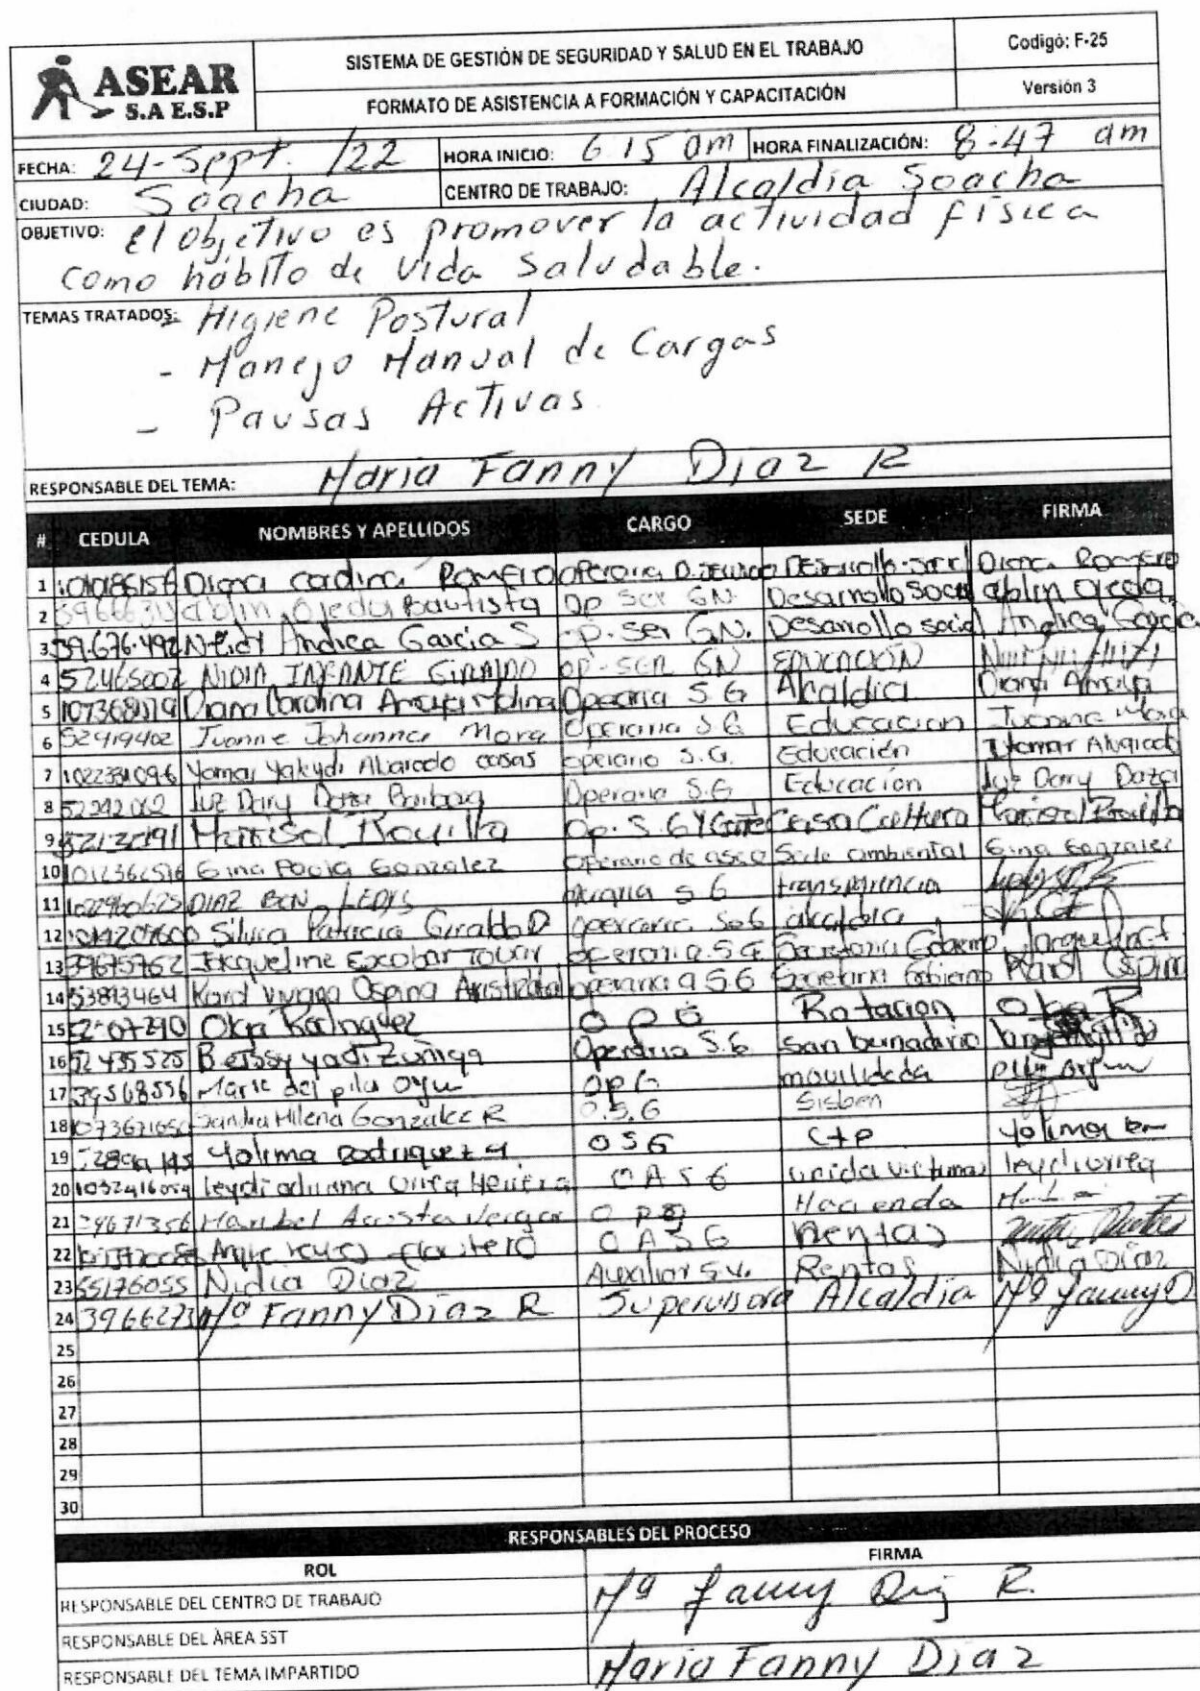 ASEAR
S.A E.S.P
SISTEMA DE GESTIÓN DE SEGURIDAD Y SALUD EN EL TRABAJO
Codigó: F-25
FORMATO DE ASISTENCIA A FORMACIÓN Y CAPACITACIÓN
Versión 3
FECHA: 24-Sept. /22 HORA INICIO: 6 15 am HORA FINALIZACIÓN: 8-47 am
CIUDAD: Soacha CENTRO DE TRABAJO: Alcaldia Soacha
OBJETIVO: El Objetivo es promover la actividad física
como hábito de vida saludable.
TEMAS TRATADOS: - Higiene Postural
- Manejo Manual de Cargas
- Pausas Activas.
RESPONSABLE DEL TEMA: Maria Fanny Diaz R
# CEDULA NOMBRES Y APELLIDOS CARGO SEDE FIRMA
1 Diana Romero operaria Diana Romero
2 Ojeda Bautista Op Ser GN. Desarrollo Social ojeda
3 39.676.492 Andrea Garcia S op. Ser GN. Desarrollo social Andrea Garcia
4 52465007 NIDIA INFANTE GIRALDO op-SER GN EDUCACIÓN
5 Diana Carolina Molina Operaria S G Alcaldia Diana
6 52419402 Ivonne Johanna Mora Operaria S G Educacion Ivonne Mora
7 1022331096 Yomar Yakydi casas operario S.G. Educación Yomar
8 52292062 Luz Dary Daza Operaria S.G Educación Luz Dary Daza
9 Marisol Op. S. G Casa Cultura Marisol
10 1012362516 Gina Paola Gonzalez operario de aseo Sede ambiental Gina Gonzalez
11 1022960625 DIAZ LEDYS S G transparencia
12 Silvia Patricia Giraldo D operaria S.G alcaldia
13 39675962 Jacqueline Escobar Tovar operaria S G Secretaria Gobierno
14 53893464 Karol Viviana Ospina operaria S G Secretaria Gobierno Karol Ospina
15 Olga Rodriguez O P G Rotacion Olga R
16 52 435 525 Betssy yadi Zuñiga Operaria S.G San bernadino
17 39568556 Marie del pila O P G movilidada
18 1073671650 Sandra Milena Gonzalez R O.S.G Sisben
19 Yolima Rodriguez O S G
20 1032416059 leydi adriana Urrea Herrera O A S G unida victimas leydi urrea
21 39671356 Maribel Acosta Vergar Hacienda
22 O A S G Rentas
23 55176055 Nidia Diaz Auxiliar Rentas Nidia Diaz
24 39662731 Mª Fanny Diaz R Supervisora Alcaldia Mª Fanny D
25
26
27
28
29
30
RESPONSABLES DEL PROCESO
ROL FIRMA
RESPONSABLE DEL CENTRO DE TRABAJO Mª Fanny Diaz R.
RESPONSABLE DEL ÀREA SST
RESPONSABLE DEL TEMA IMPARTIDO Maria Fanny Diaz